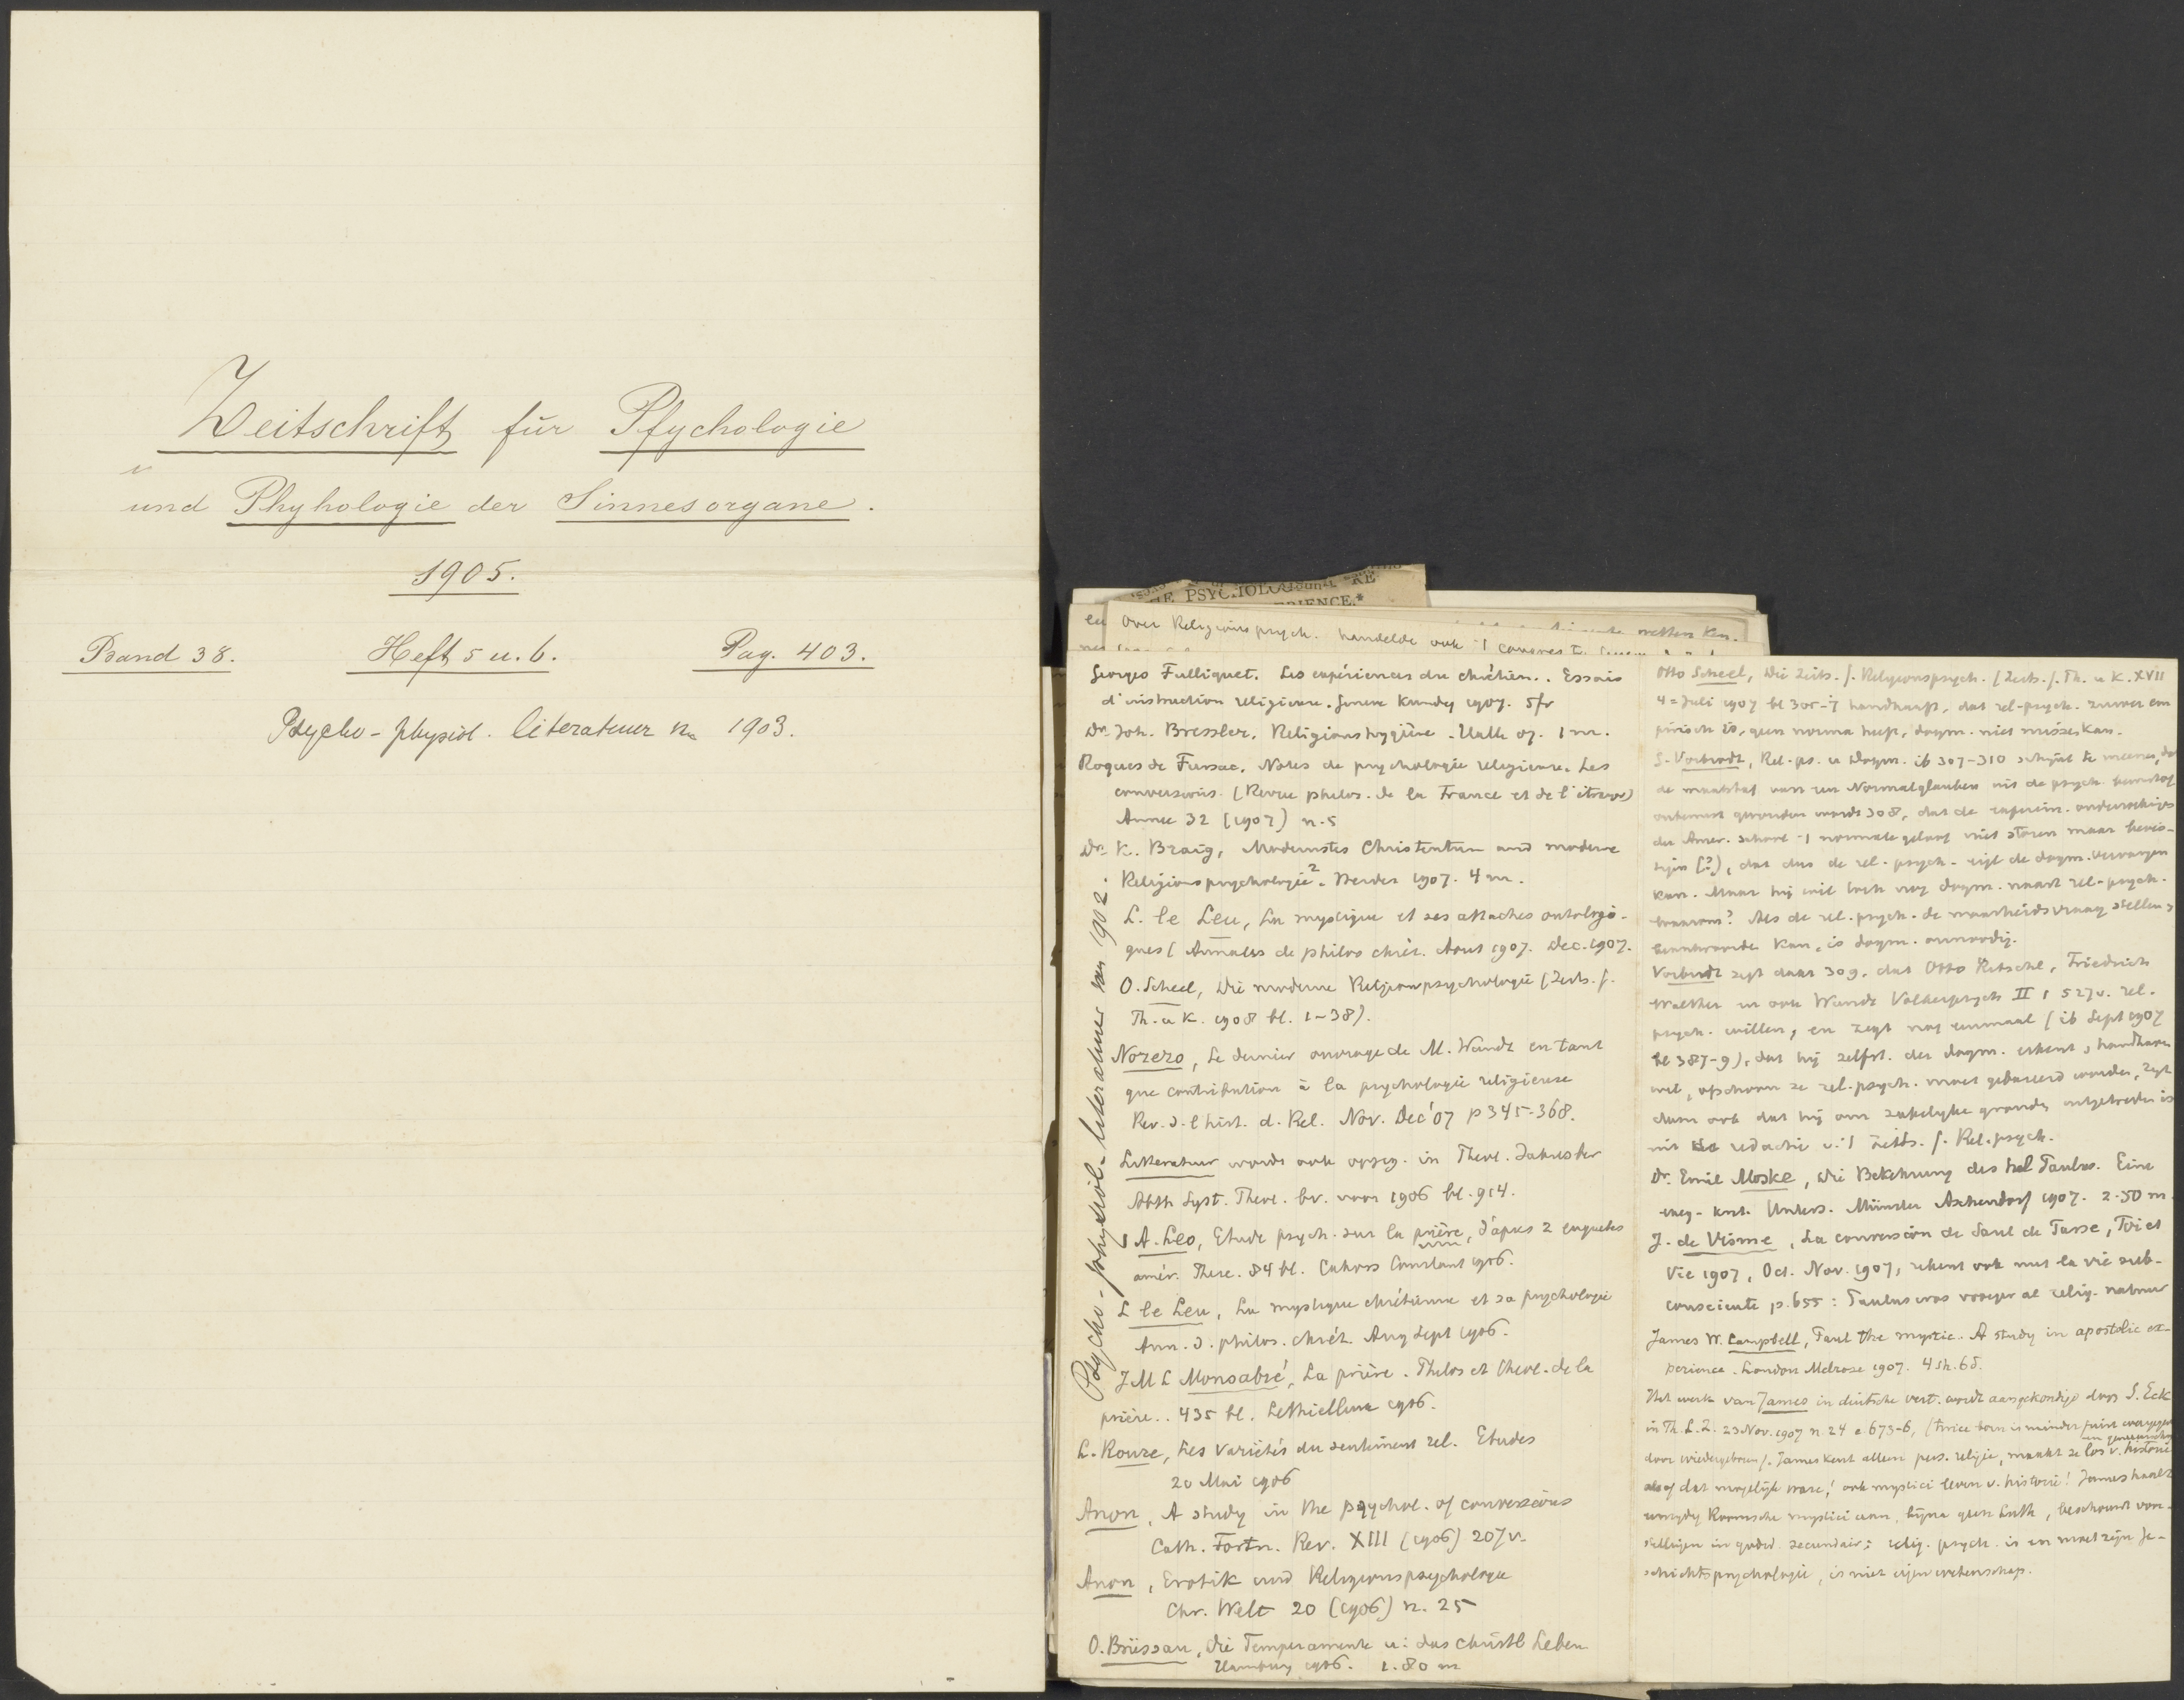 Zeitschrift für Psychologie
und Phyhologie der Sinnesorgane.
1905.
Band 38. Heft 5 u. 6. Pag. 403.
Psycho-physiol. literatuur v. 1903.
THE PSYCHOLOG
RE
ERIENCE.*
Over Religionspsych. handelde ook 't congres
Georges Fulliquet. Les expériences du chrétien.. Essais
d'instruction religieuse. Geneve Kundig 1907. 5 fr
Dr. Joh. Bressler. Religionshygiëne. Halle 07. 1 m.
Roques de Fursac. Notes de psychologie religieuse. Les
conversions. (Revue philos. de la France et de l'étranger)
Annee 32 (1907) n. 5
Dr. K. Braig, Modernstes Christentum und moderne
Religionspsychologie². Herder 1907. 4 m.
L. le Leu, La mystique et ses attaches ontologi-
ques (Annales de philos chrét. Aout 1907. Dec. 1907.
O. Scheel, Die moderne Religionspsychologie (Zeits. f.
Th. u K. 1908 bl. 1-38).
Norero, Le dernier ouvrage de M. Wundt en tant
que contribution à la psychologie religieuse
Rev. d. l'hist. d. Rel. Nov. Dec '07 p 345-368.
Litteratuur wordt ook opgeg. in Theol. Jahresber
Abth Syst. Theol. bv. voor 1906 bl. 914.
A. Leo, Etude psych. sur la prière, d'apres 2 enquetes
amér. These. 84 bl. Cahors Coueslant 1906.
L le Leu, La mystique chrétienne et sa psychologie
Ann. d. philos. chrét. Aug Sept 1906.
J M L Monsabré, La prière. Philos et théol. de la
prière.. 435 bl. Lethielleux 1906.
L. Roure, Les Variétés du sentiment rel. Etudes
20 Mai 1906
Anon, A study in the psychol. of conversions
Cath. Fortn. Rev. XIII (1906) 207 v.
Anon, Erotik und Religionspsychologie
Chr. Welt 20 (1906) n. 25
O. Brüssau, Die Temperamente u: das christl Leben
Hamburg 1906. 1.80 m
Psycho-physiol. literatuur van 1902.
Otto Scheel, Die Zeits. f. Religionspsych. (Zeits. f. Th. u K. XVII
4 = Juli 1907 bl 305-7 handhaaft, dat rel-psych. zuiver em
pirisch is, geen norma heeft, dogm. niet missen kan.
G. Vorbrodt, Rel-ps. u Dogm. ib 307-310 schijnt te meenen, dat
de maatstaf van een Normalglauben uit de psych.
gevonden wordt 308, dat de experim.
der Amer. school 't normale geloof niet storen maar bevei-
ligen (?), dat dus de rel-psych. de dogm. vervangen
kan. Maar hij wil toch nog dogm. naast rel-psych.
waarom? Als de rel. psych. de waarheidsvraag stellen &
beantwoorde kan, is dogm. onnoodig.
Vorbrodt zegt daar 309, dat Otto Ritschl, Friedrich
Walther en ook Wundt Volkerpsych II 1 527 v. rel.
psych. willen, en zegt nog eenmaal (ib Sept 1907
bl 387-9), dat hij zelfst. der dogm. erkent & handhaven
wil, ofschoon ze rel-psych. moet gebaseerd worden, zegt
dan ook dat hij om zakelijke gronden uitgetreden is
uit de redactie v. 't Zeits. f. Rel.psych.
Dr. Emil Moske, Die Bekehrung des hl Paulus. Eine
exeg-krit. Unters. Münster Aschendorf 1907. 2.50 m.
J. de Visme, La conversion de Saul de Tarse, Foi et
Vie 1907, Oct. Nov. 1907, rekent ook met la vie sub-
consciente p. 655: Paulus was vroeger al relig. natuur
James W. Campbell, Paul the mystic. A study in apostolic ex-
perience. London Melrose 1907. 4 sh. 6 d.
Het werk van James in duitsche vert. wordt aangekondigd door S. Eck
in Th. L. Z. 23 Nov. 1907 n. 24 c 673-6, (twice born is minder juist weergegeven
door wiedergeboren). James kent alleen pers. religie, maakt ze los v. historie
alsof dat mogelijk ware! ook mystici leven v. historie! James haalt
Roomsche mystici aan, bijna geen Luth, beschouwt voor-
stellingen in godsd. secundair; relig. psych. is en moet zijn Ge-
schichtspsychologie, is niet eigen wetenschap.